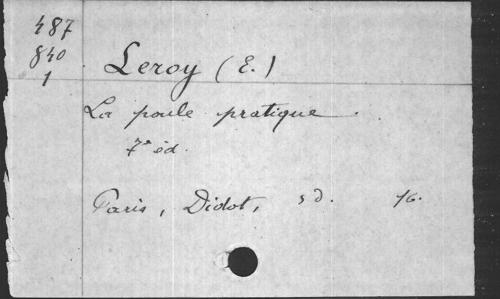 487
840
1
Leroy (E.)
La poule pratique.
7e éd.
Paris, Didot, s d. 16.